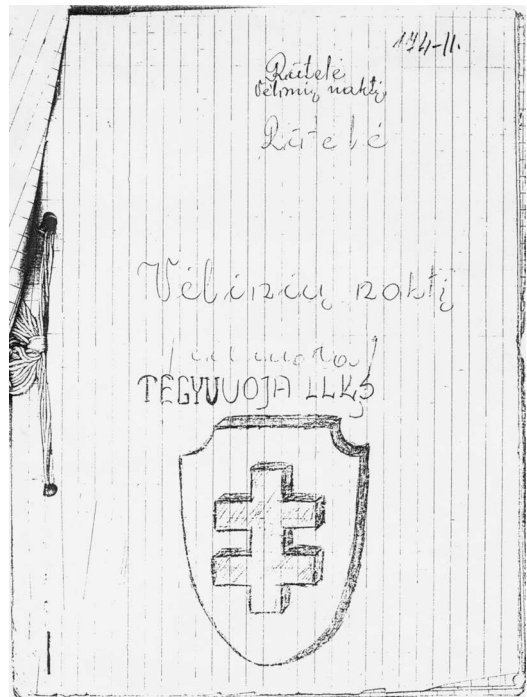 174-11.
Rūtelė
Vėlinių naktį
Rūtelė
Vėlinių naktį
TEGYVUOJA LLKS